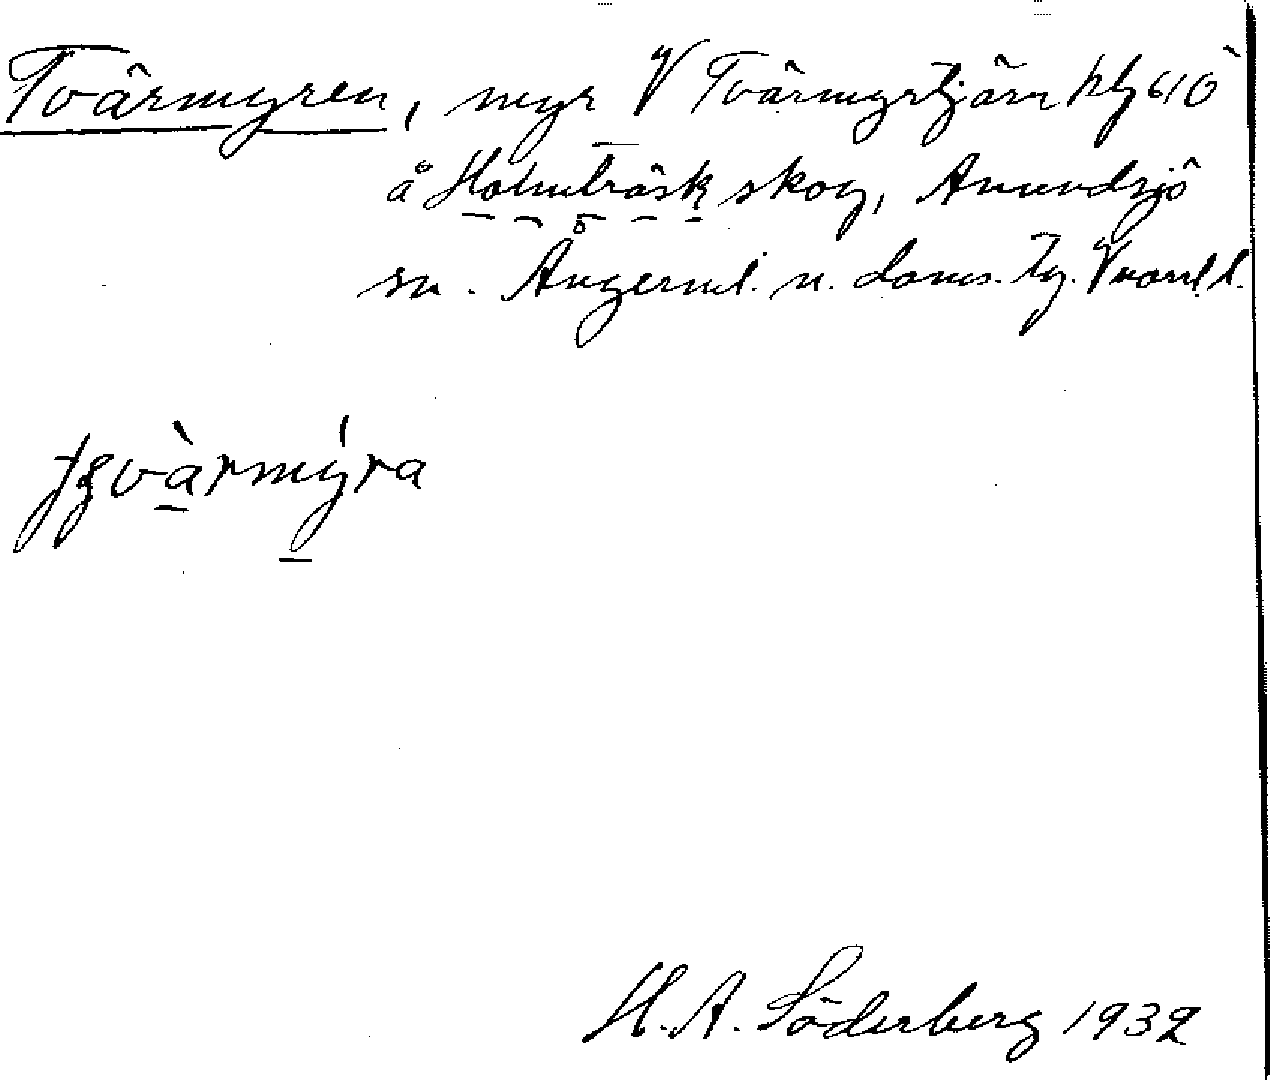 Tvärmyren, myr V Tvärmyrtjärn
å Holmträsk skog, Anundsjö
sn. Ångerml. n. doms.
tjvàrmýra
H. A. Söderberg 1932